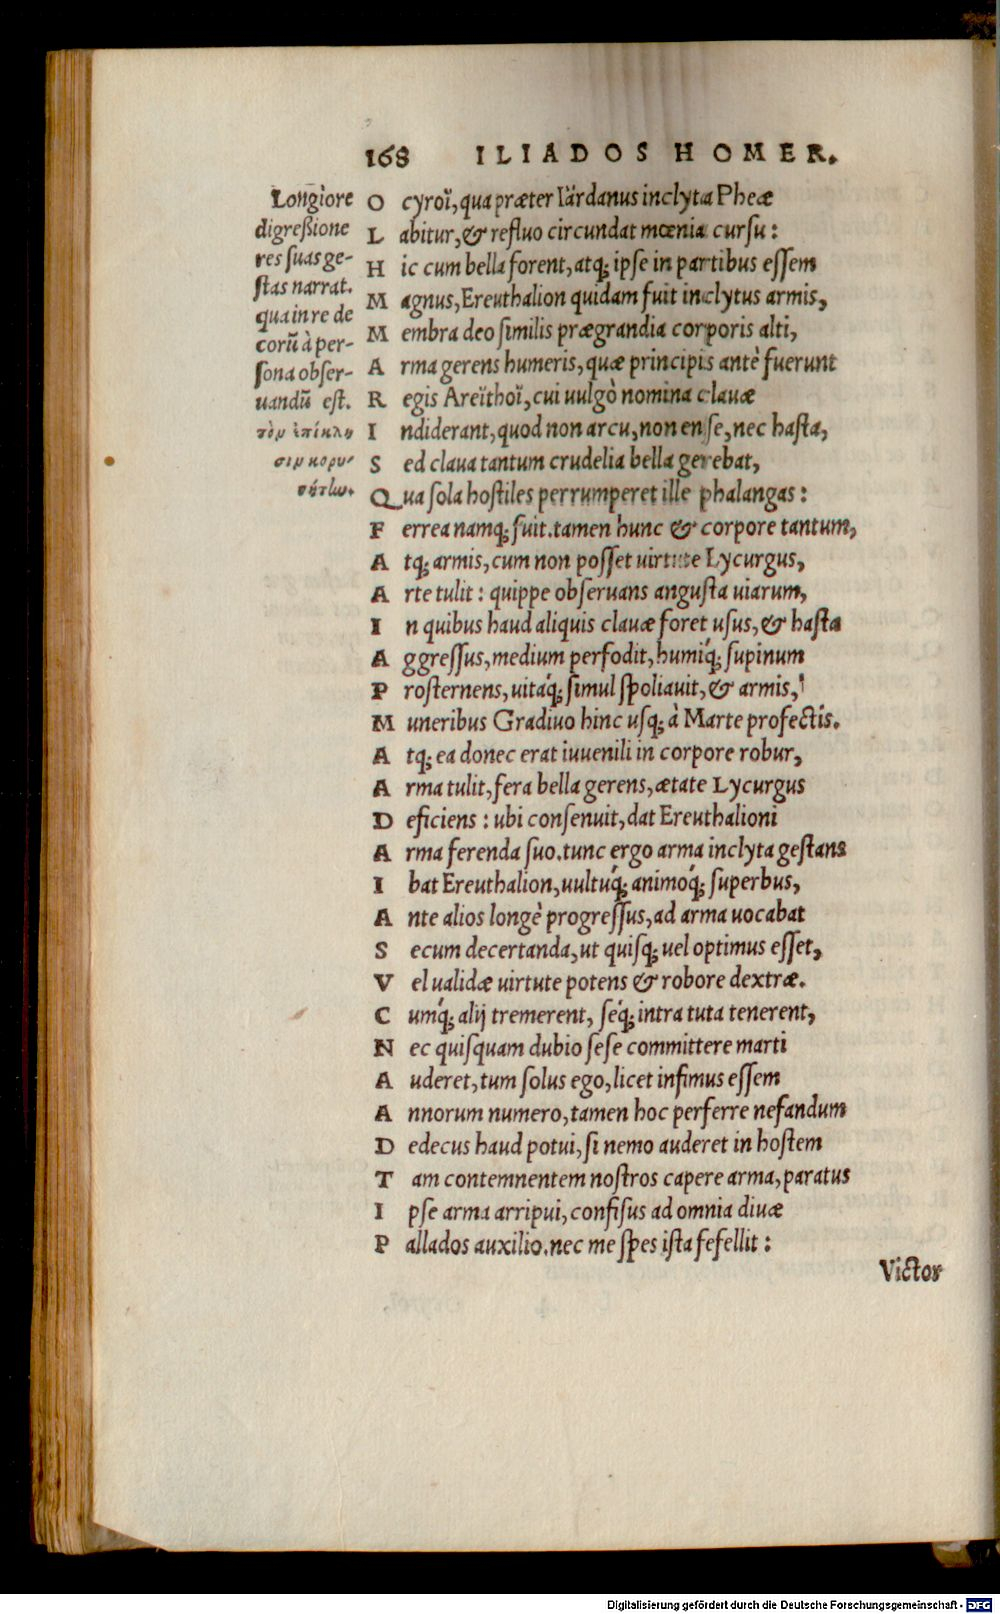 168 ILIADOS HOMER.
Longiore
digreßione
res suas ge-
stas narrat.
qua in re de
corũ à per-
sona obser-
uandũ est.
τὸν ἐπίκλη
σιν κορυ-
νήτlω.
Ocyroï, qua præter Iärdanus inclyta Pheæ
Labitur, & refluo circundat mœnia cursu:
Hic cum bella forent, atq; ipse in partibus essem
Magnus, Ereuthalion quidam fuit inclytus armis,
Membra deo similis prægrandia corporis alti,
Arma gerens humeris, quæ principis antè fuerunt
Regis Areïthoï, cui uulgò nomina clauæ
Indiderant, quod non arcu, non ense, nec hasta,
Sed claua tantum crudelia bella gerebat,
Qua sola hostiles perrumperet ille phalangas:
Ferrea namq; fuit. tamen hunc & corpore tantum,
Atq; armis, cum non posset uirtute Lycurgus,
Arte tulit: quippe obseruans angusta uiarum,
In quibus haud aliquis clauæ foret usus, & hasta
Aggressus, medium perfodit, humíq; supinum
Prosternens, uitáq; simul spoliauit, & armis,
Muneribus Gradiuo hinc usq; à Marte profectis.
Atq; ea donec erat iuuenili in corpore robur,
Arma tulit, fera bella gerens, ætate Lycurgus
Deficiens: ubi consenuit, dat Ereuthalioni
Arma ferenda suo. tunc ergo arma inclyta gestans
Ibat Ereuthalion, uultúq; animóq; superbus,
Ante alios longè progressus, ad arma uocabat
Secum decertanda, ut quisq; uel optimus esset,
Vel ualidæ uirtute potens & robore dextræ.
Cumq́; alij tremerent, séq; intra tuta tenerent,
Nec quisquam dubio sese committere marti
Auderet, tum solus ego, licet infimus essem
Annorum numero, tamen hoc perferre nefandum
Dedecus haud potui, si nemo auderet in hostem
Tam contemnentem nostros capere arma, paratus
Ipse arma arripui, confisus ad omnia diuæ
Pallados auxilio. nec me spes ista fefellit:
Victor
Digitalisierung gefördert durch die Deutsche Forschungsgemeinschaft - DFG